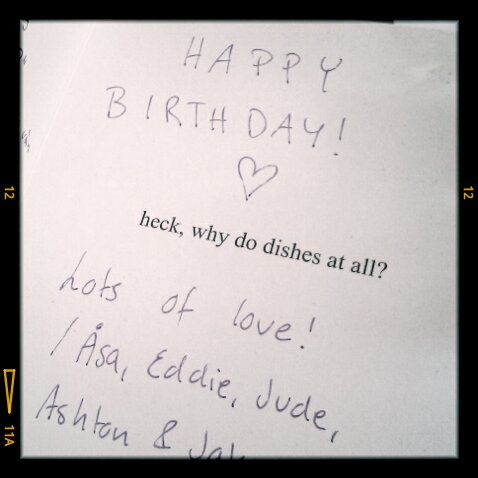 HAPPY
BIRTHDAY!
heck, why do dishes at all?
Lots of love!
/Åsa, Eddie, Jude,
Ashton &
12
12
11A